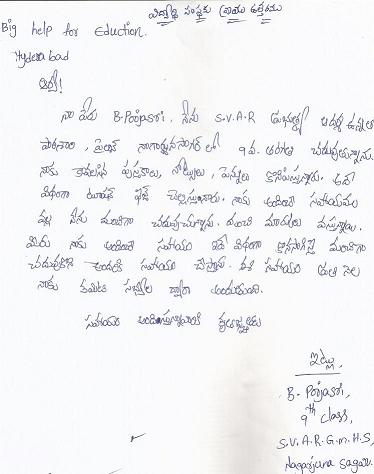 విద్యార్థి సంస్థకు వ్రాయు ఉత్తరము
Big help for Eduction.
Hyderabad
ఆర్యా!
నా పేరు B.Poojasri. నేను S.V.A.R ప్రభుత్వ ఆదర్శ ఉన్నత
పాఠశాల, పైలాన్ నాగార్జునసాగర్ లో 9వ. తరగతి చదువుతున్నాను.
నాకు కావలసిన పుస్తకాలు, నోట్బుక్లు, పెన్నులు కొనిపిస్తున్నారు. అదే
విధంగా ట్యూషన్ ఫీజ్ చెల్లిస్తున్నారు. నాకు అందించే సహాయము
వల్ల నేను మంచిగా చదువుచున్నాను. మంచి మార్కులు వస్తున్నాయి.
మీరు నాకు అందించే సహాయం ఇదే విధంగా కొనసాగిస్తే మంచిగా
చదువుకొని అందరికి సహాయం చేస్తాను. మీ సహాయం ప్రతి నెల
నాకు కమిటి సభ్యుల ద్వారా అందుతుంది.
సహాయం అందిస్తున్నవారికి కృతజ్ఞతలు
ఇట్లు,
B. Poojasri,
9th class,
S.V.A.R.G.M.H.S,
Nagarjuna sagar.